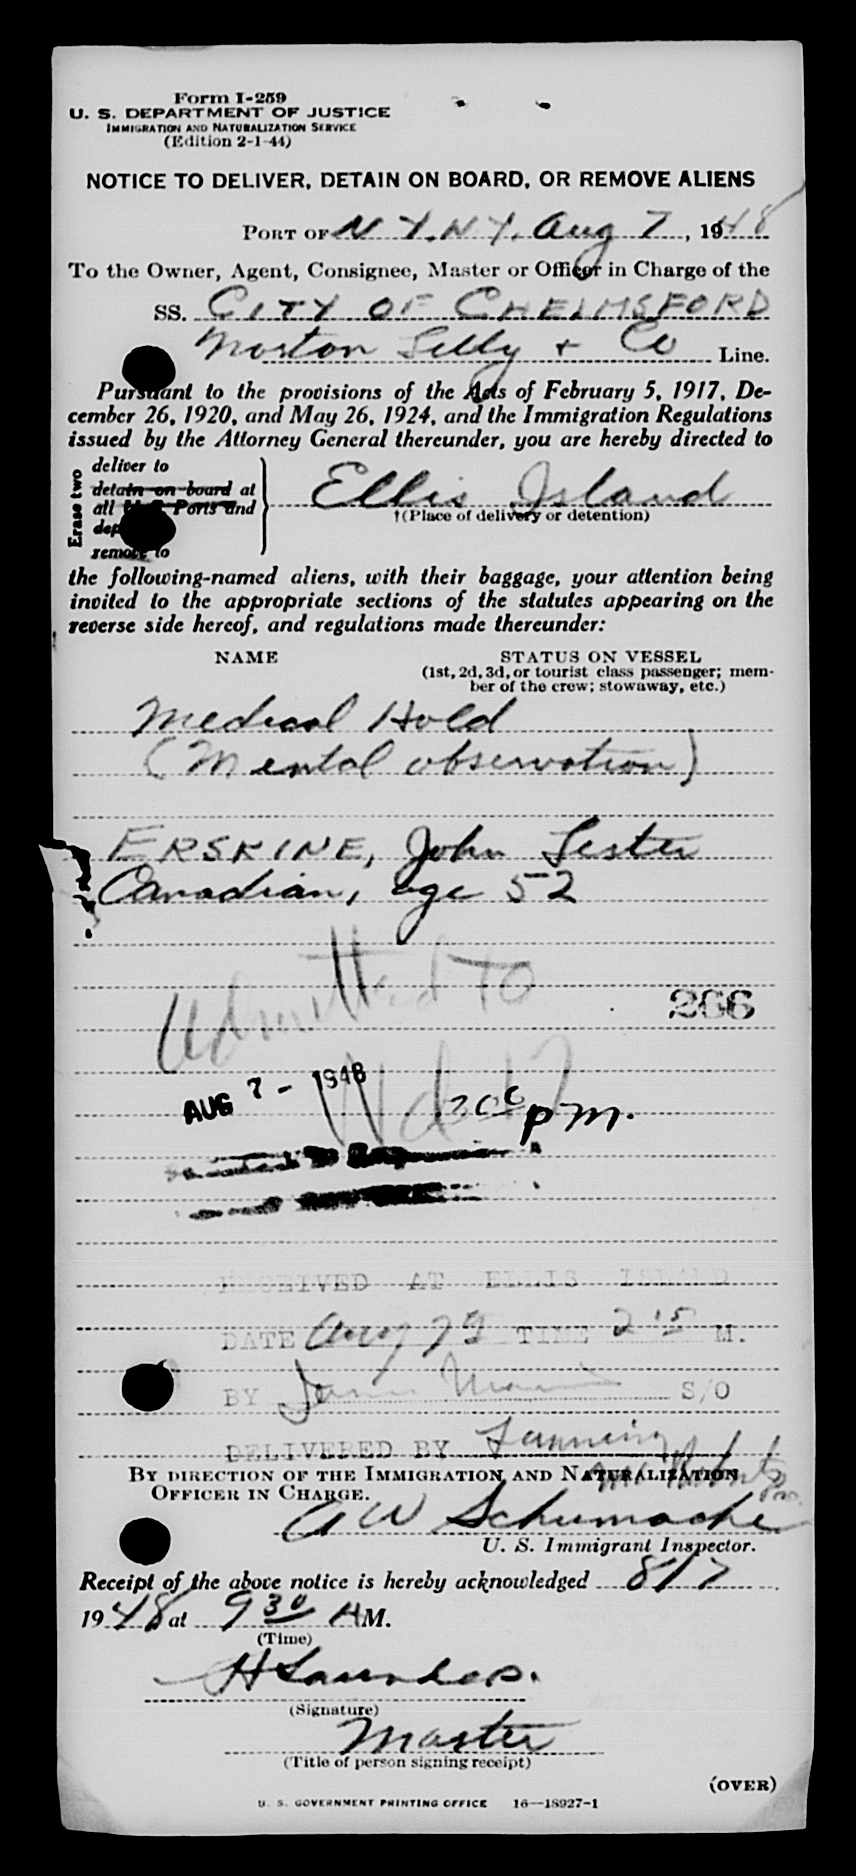 Form I-259
U. S. DEPARTMENT OF JUSTICE
IMMIGRATION AND NATURALIZATION SERVICE
(Edition 2-1-44)
NOTICE TO DELIVER, DETAIN ON BOARD, OR REMOVE ALIENS
PORT OF N. Y. N. Y. Aug 7, 1948
To the Owner, Agent, Consignee, Master or Officer in Charge of the
SS. CITY OF CHELMSFORD
Norton Lilly + Co Line.
Pursuant to the provisions of the Acts of February 5, 1917, De-
cember 26, 1920, and May 26, 1924, and the Immigration Regulations
issued by the Attorney General thereunder, you are hereby directed to
Erase two
deliver to
detain on board at
all Ports and
remove to
Ellis Island
†(Place of delivery or detention)
the following-named aliens, with their baggage, your attention being
invited to the appropriate sections of the statutes appearing on the
reverse side hereof, and regulations made thereunder:
NAME STATUS ON VESSEL
(1st, 2d, 3d, or tourist class passenger; mem-
ber of the crew; stowaway, etc.)
Medical Hold
(Mental observation)
ERSKINE, John Lester
Canadian, age 52
Admitted to
266
Wd 17
AUG 7 - 1948
pm.
RECEIVED AT ELLIS ISLAND
DATE Aug 7 TIME 2 15 M.
BY S/O
DELIVERED BY Fanning
BY DIRECTION OF THE IMMIGRATION AND NATURALIZATION
OFFICER IN CHARGE.
A W Schumacher
U. S. Immigrant Inspector.
Receipt of the above notice is hereby acknowledged 8/7
1948 at 9 30 AM.
(Time)
H Saunders.
(Signature)
Master
(Title of person signing receipt)
(OVER)
U. S. GOVERNMENT PRINTING OFFICE 16—18927-1